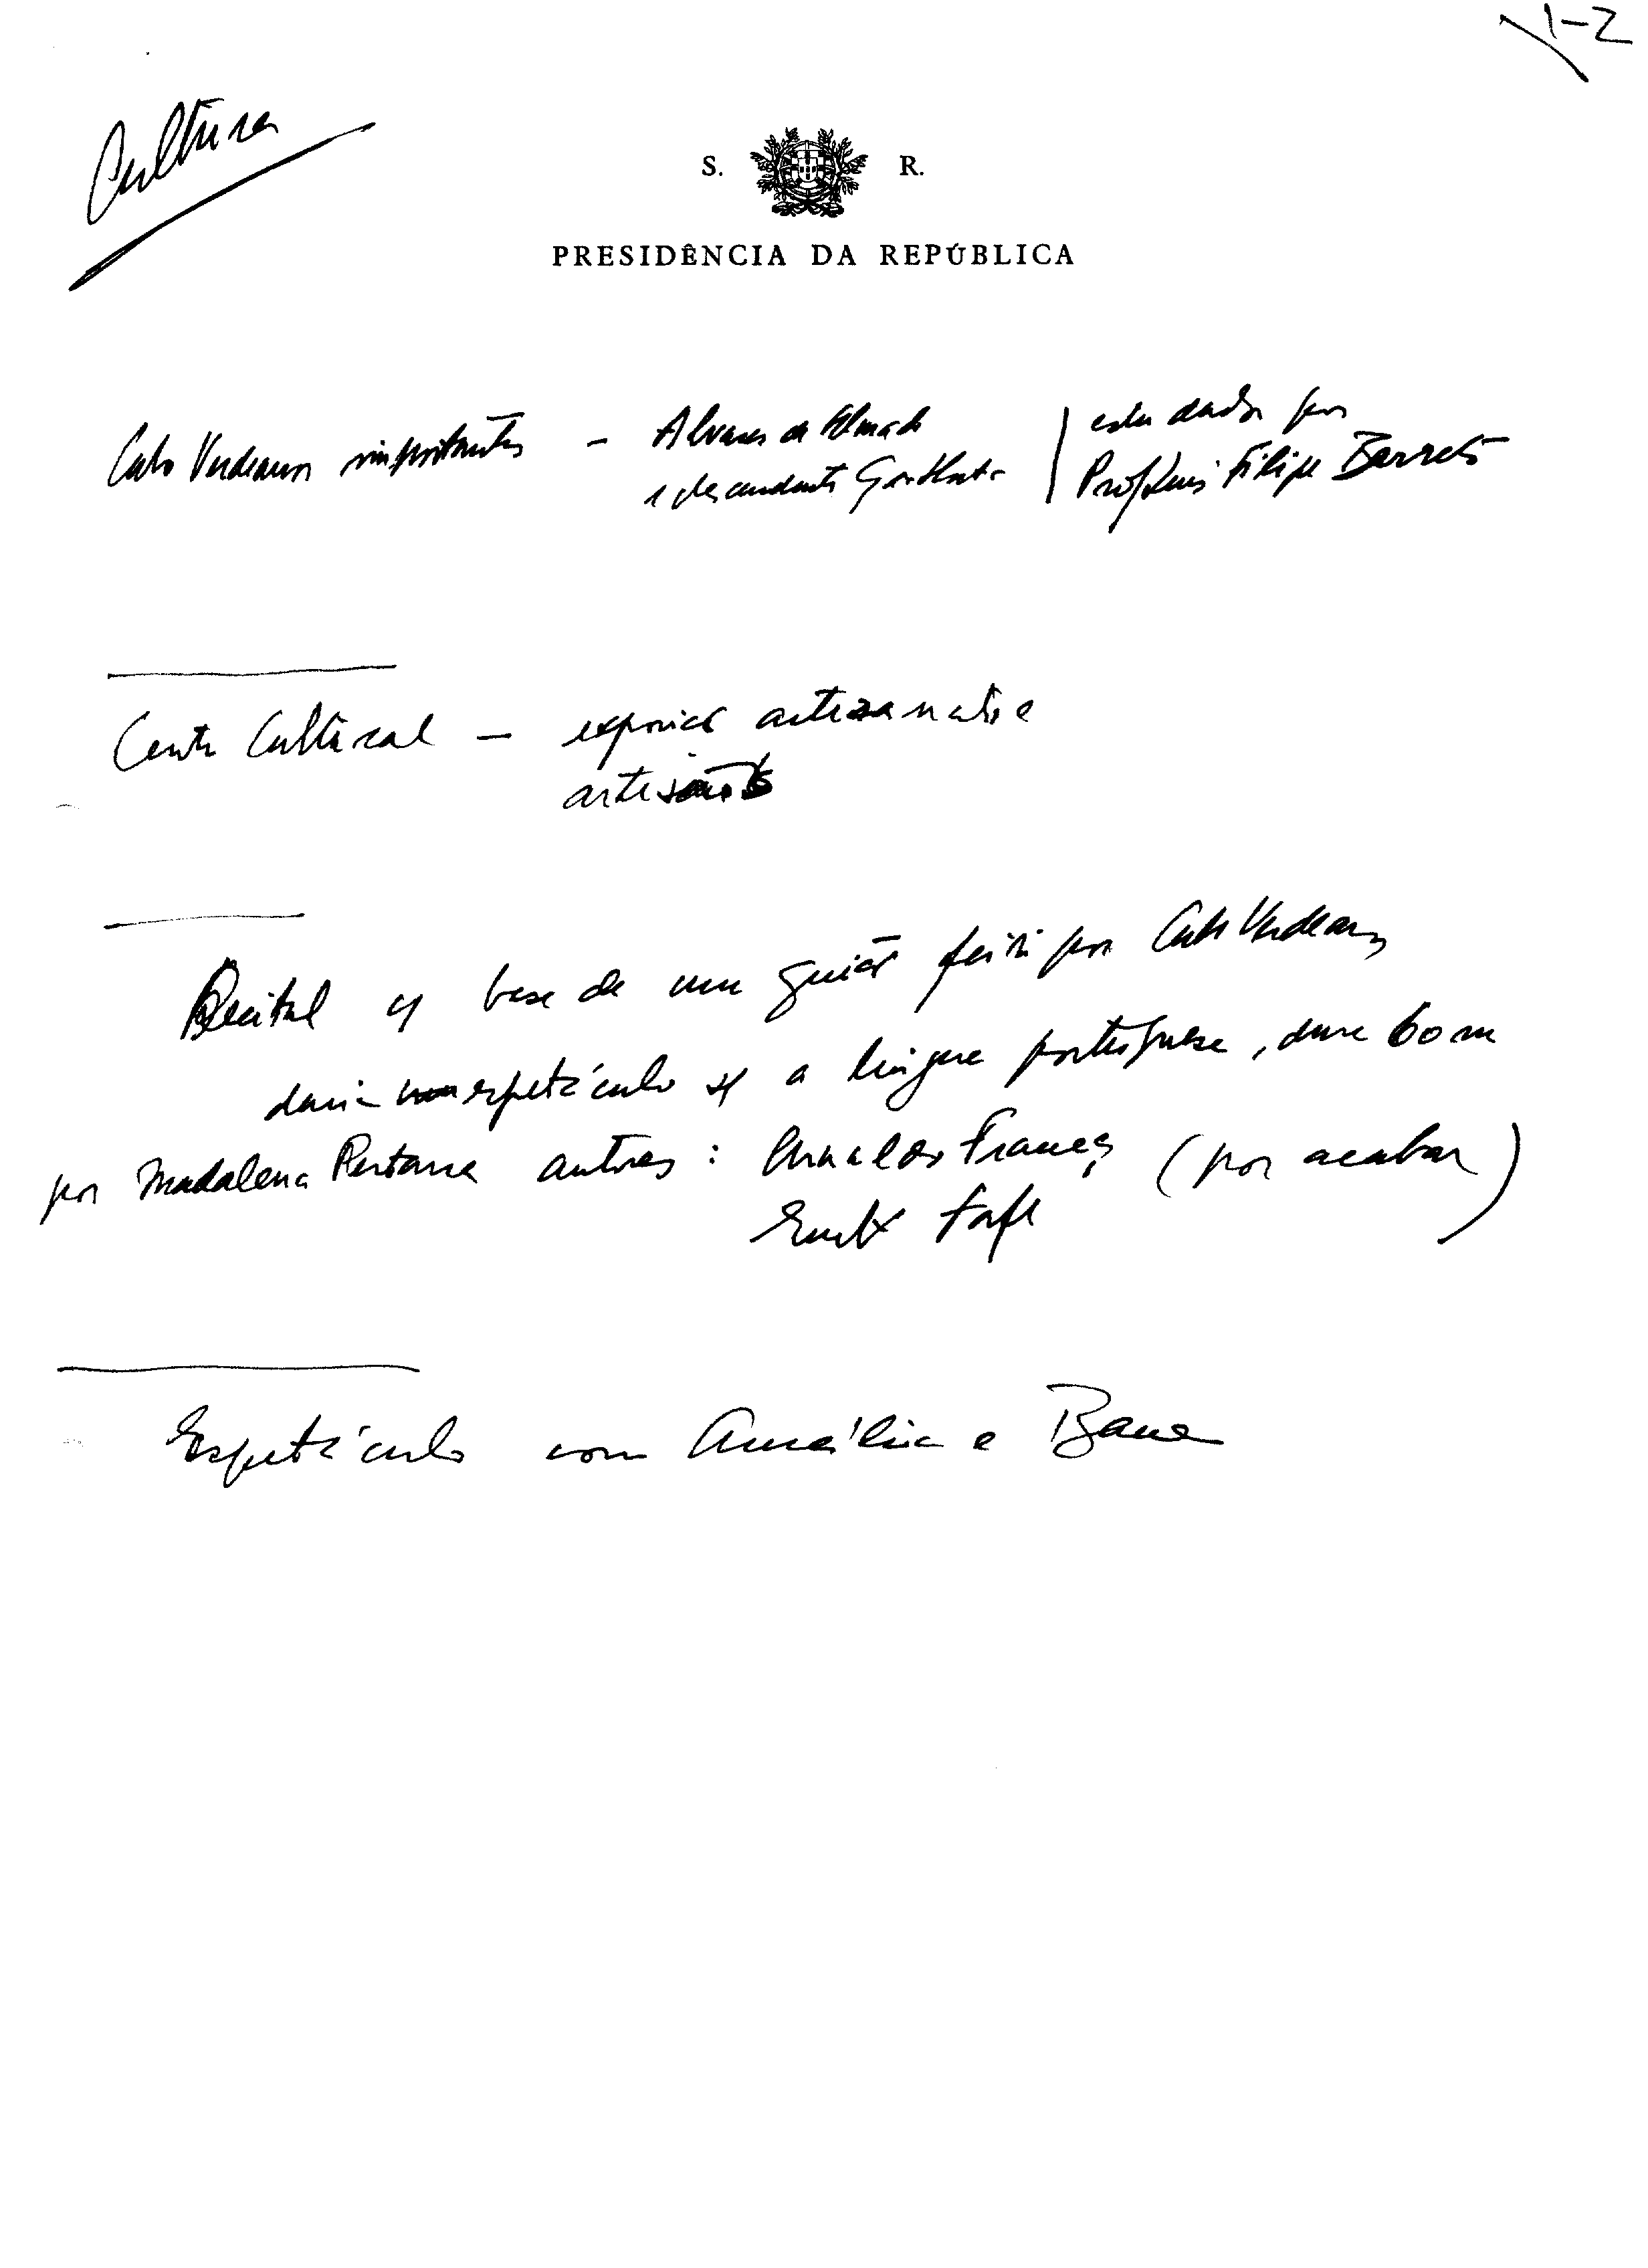 1-2
Cultura
S. R.
PRESIDÊNCIA DA REPÚBLICA
Cabo Verdeanos importantes - Alvares de Almada
e descendente | estudados por
Prof Luis Filipe Barreto
Centro Cultural - exposição artezanato e
artesãos
Recital c/ base de um guião feito por Cabo Verdeanos
daria espetáculo s/ a lingua portuguesa, dura 60 m
por Madalena Pestana autores : Arnaldo França (por acabar)
Espetáculo com Amália e Bana